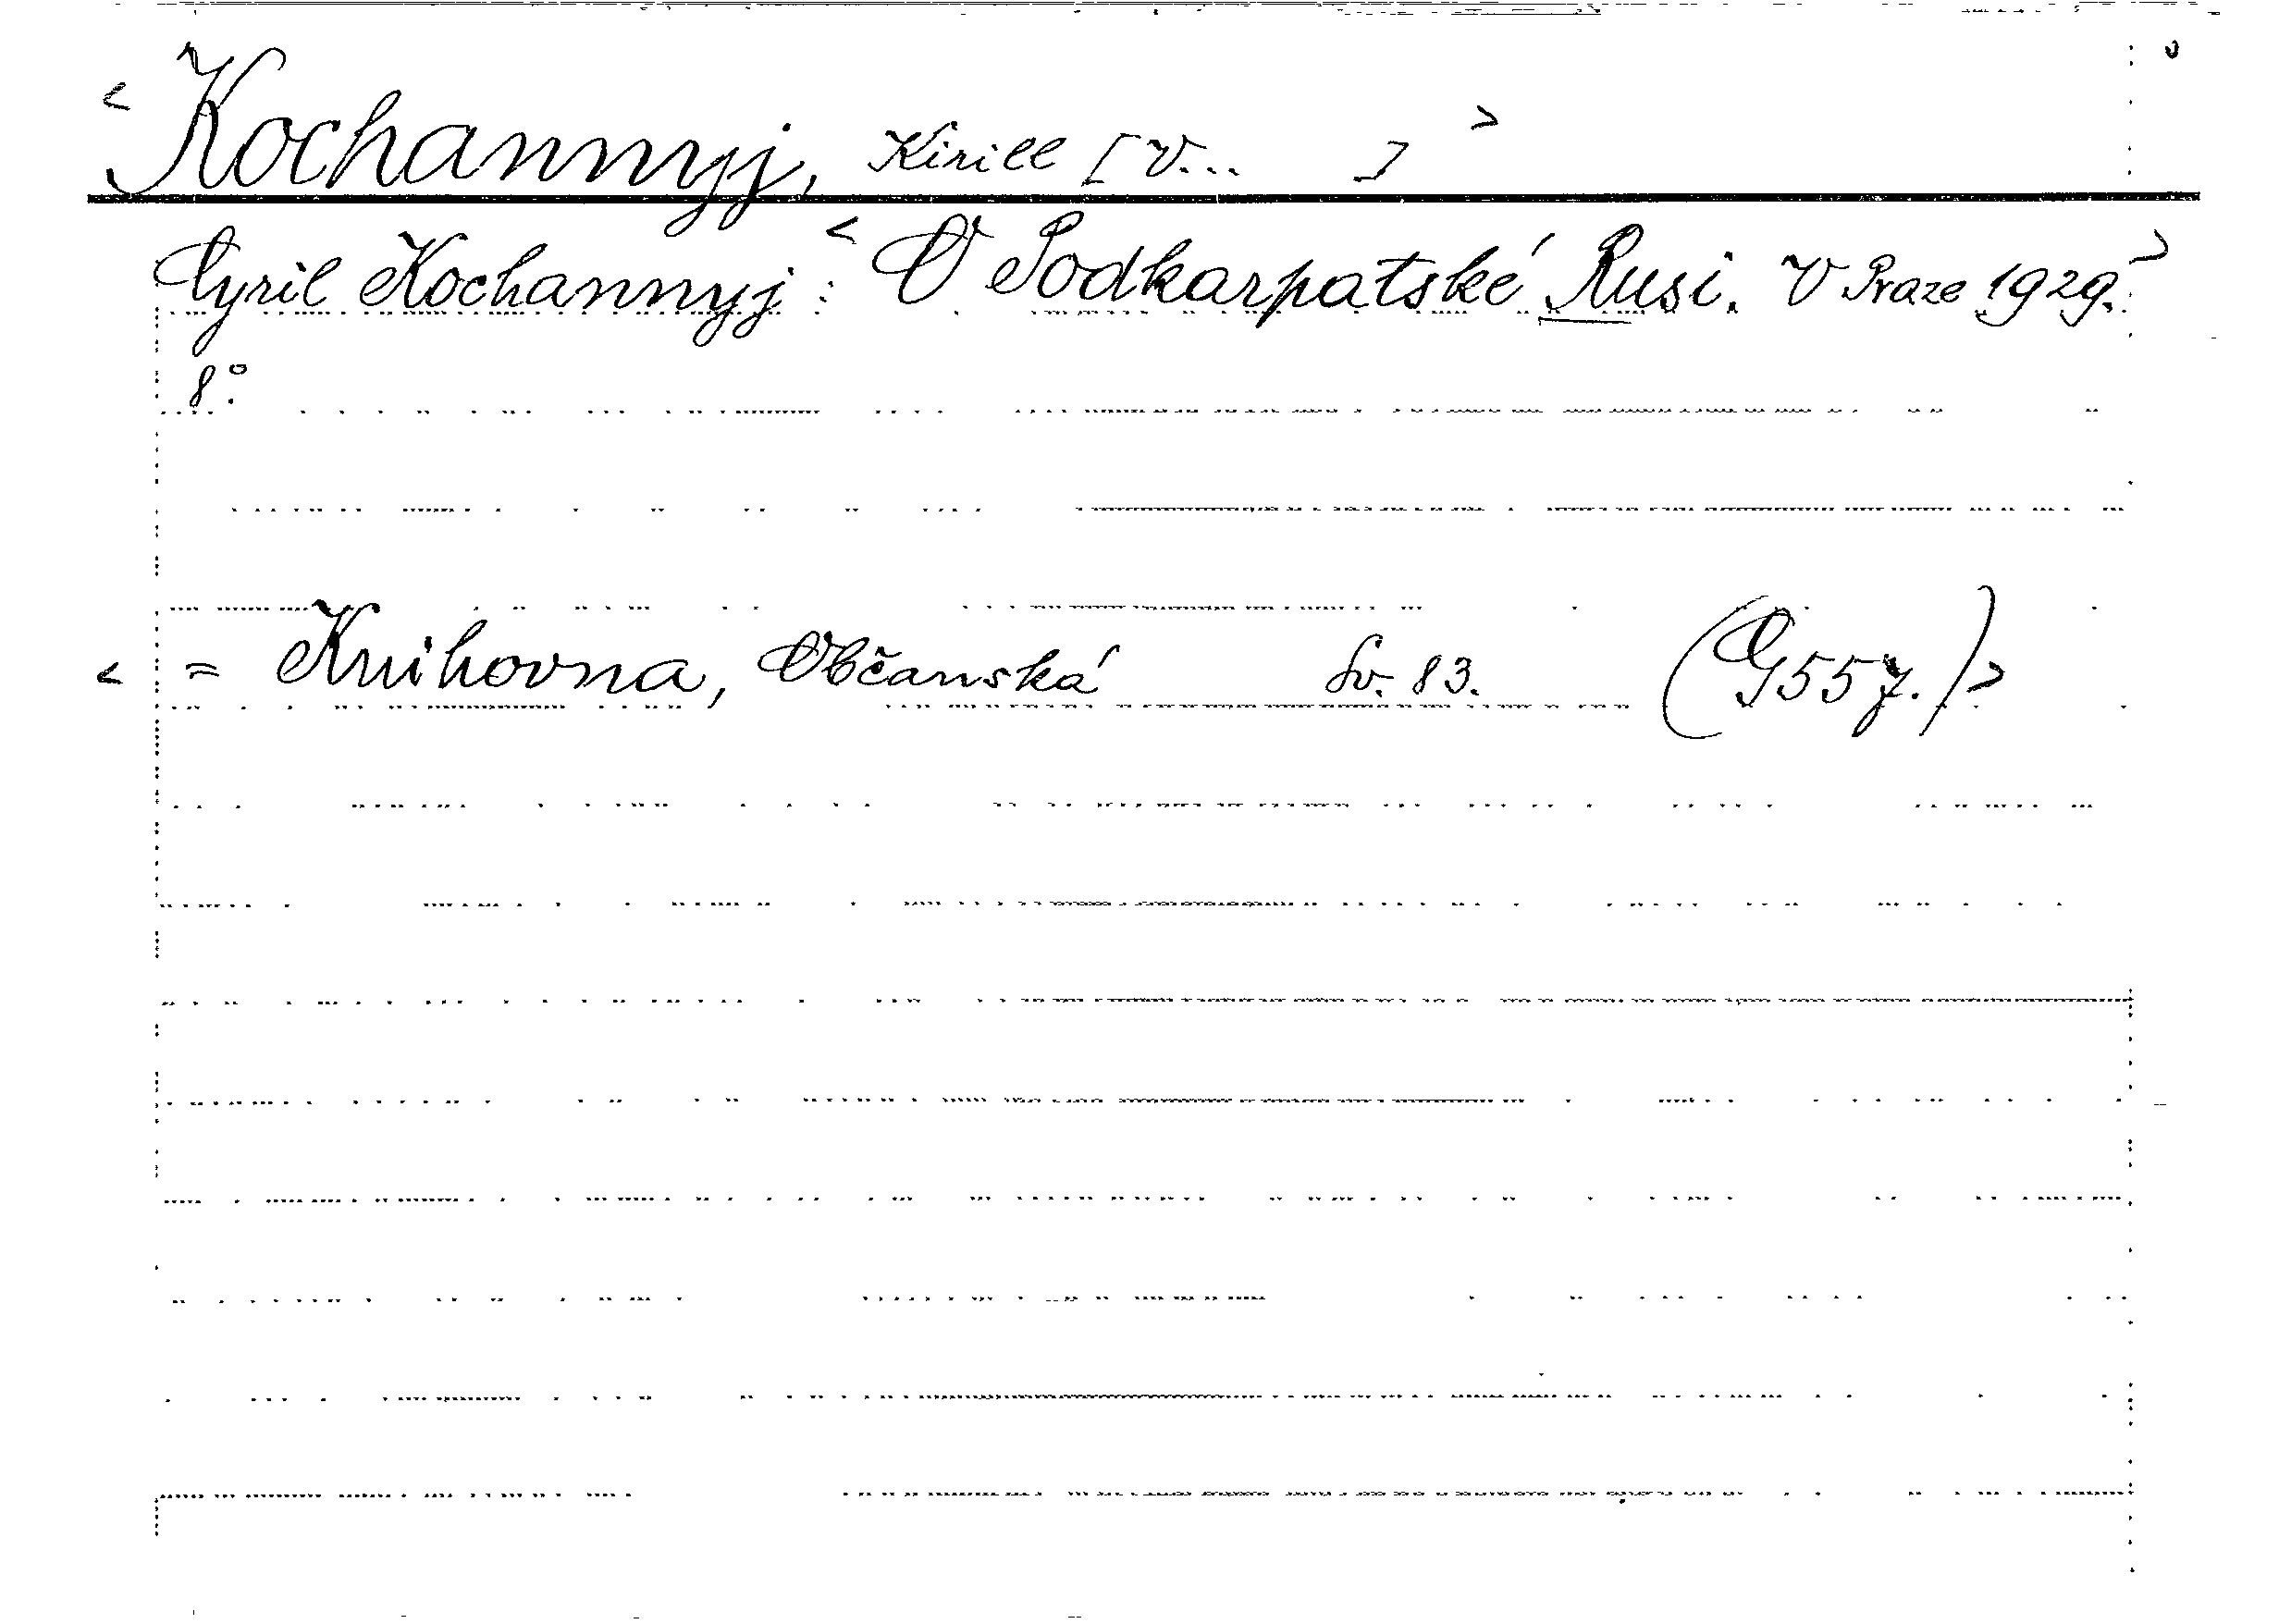 < Kochannyj, Kirill [V... ] >
Cyril Kochannyj: < O Podkarpatské Rusi. V Praze 1929. >
8°.
< = Knihovna, Občanská Sv. 83. (G 557.) >